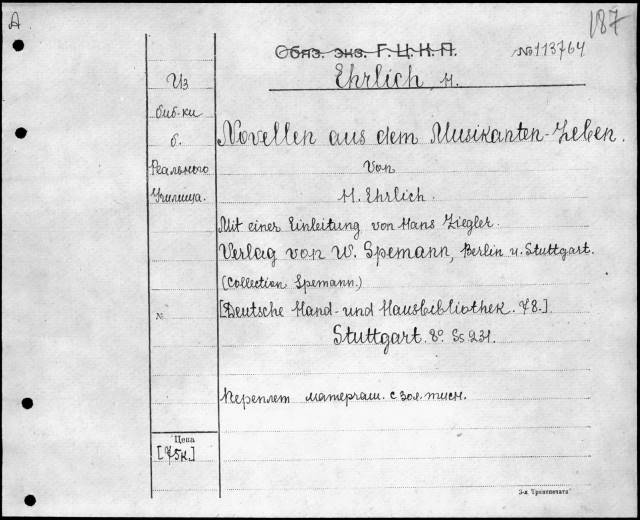 А
187
Обяз. экз. Г.Ц.К.П.
№113764
Ehrlich, H.
Из
биб-ки
б.
Реального
Училища.
Novellen aus dem Musikanten-Leben.
von
H. Ehrlich.
Mit einer Einleitung von Hans Ziegler.
Verlag von W. Spemann, Berlin u. Stuttgart.
(Collection Spemann.)
№
[Deutsche Hand- und Hausbibliothek. 78.]
Stuttgart. 8° Ss 231.
Переплет материал. с зол. тисн.
Цена
[75к.]
3-я